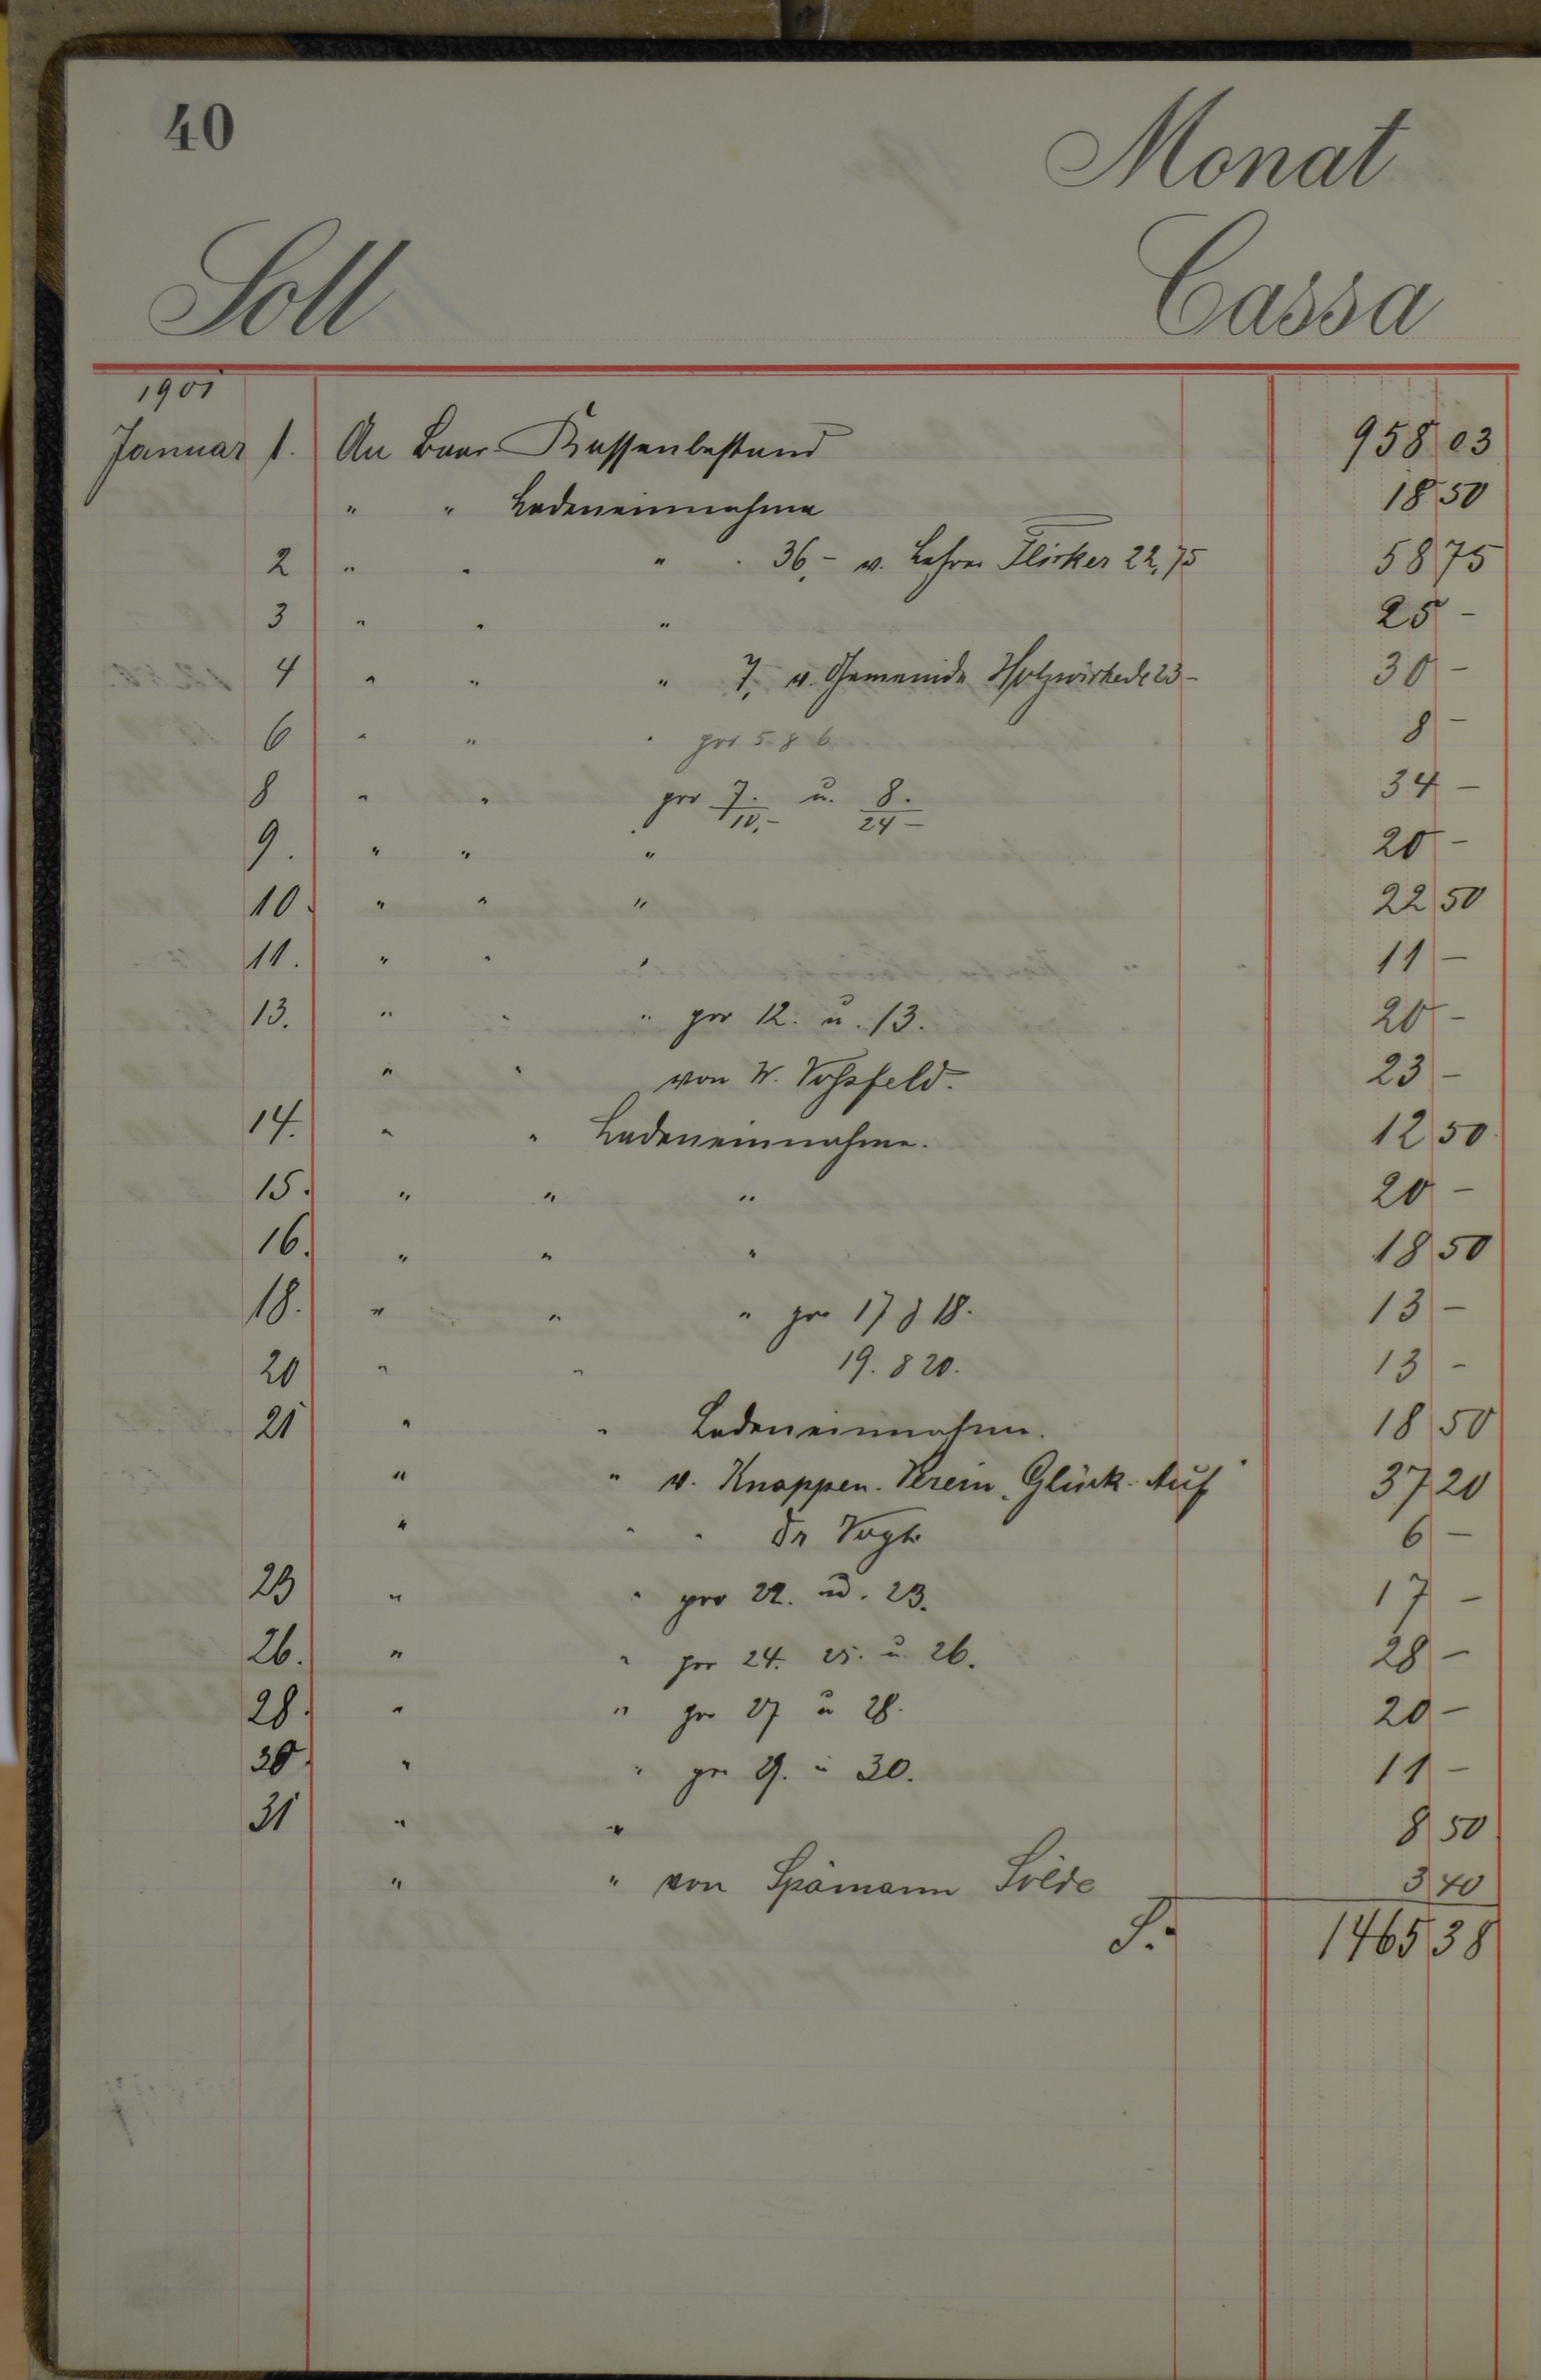 40
Monat
Soll
Cassa
1901
Januar 1. An Baar-Kassenbestand 958 03
" " Ladeneinnahme 18 50
2 " " " 36,- v. Lehrer Flicker 22,75 58 75
3 " " " 25 -
4 " " " 7,- v. Gemeinde Holzwickede 23- 30 -
6 " " " pro 5. & 6. 8 -
8 " " pro 7. u. 8. 34 -
10,- 24 -
9. " " " 20 -
10. " " " 22 50
11. " " " 11 -
13. " " " pro 12. u. 13. 20 -
" " von W. Vohsfeld. 23 -
14. " " Ladeneinnahme. 12 50
15. " " " 20 -
16. " " " 18 50
18. " " " pro 17 & 18. 13 -
20 " " 19. & 20. 13 -
21 " " Ladeneinnahme. 18 50
" " v. Knappen-Verein „Glück-Auf" 37 20
" " " Dr Vogt 6 -
23 " " pro 22. und. 23. 17 -
26. " " pro 24. 25. u. 26. 28 -
28. " " pro 27 u 28. 20 -
30. " " pro 29. u 30. 11 -
31 " " 8 50
" " von Spämann Sölde 3 40
S. 1465 38